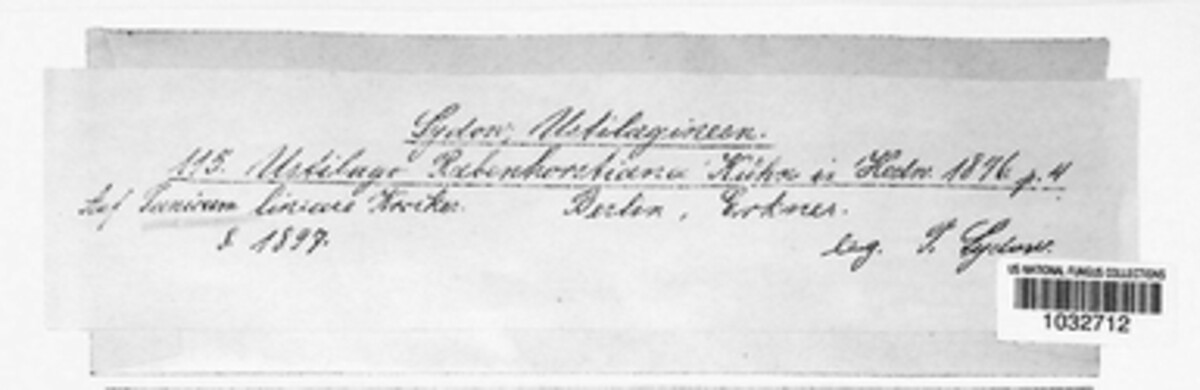 Sydow, Ustilagineen.
115. Ustilago Rabenhorstiana Kühn in Hedw. 1876 p. 4
Auf Panicum lineare Krocker. Berlin, Erkner.
8. 1897.
leg. P. Sydow.
US NATIONAL FUNGUS COLLECTIONS
1032712